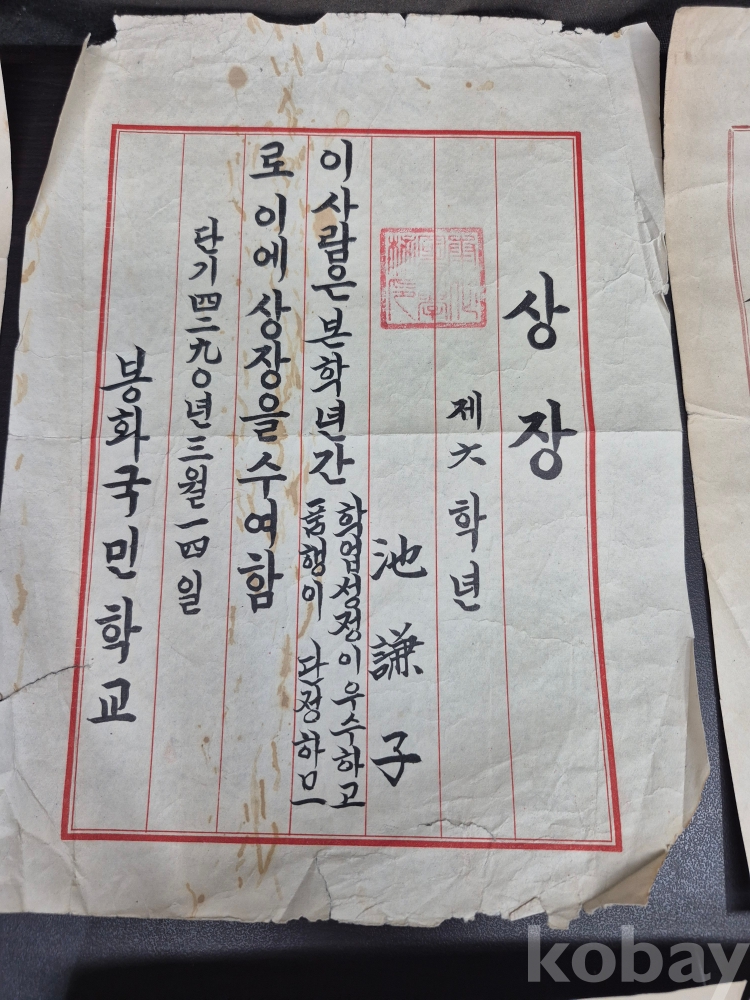 상장
제六학년
池謙子
이사람은본학년간 학업성정이우수하고
품행이 단정하므
로이에상장을수여함
단기四二九0년三월一四일
봉화국민학교
kobay